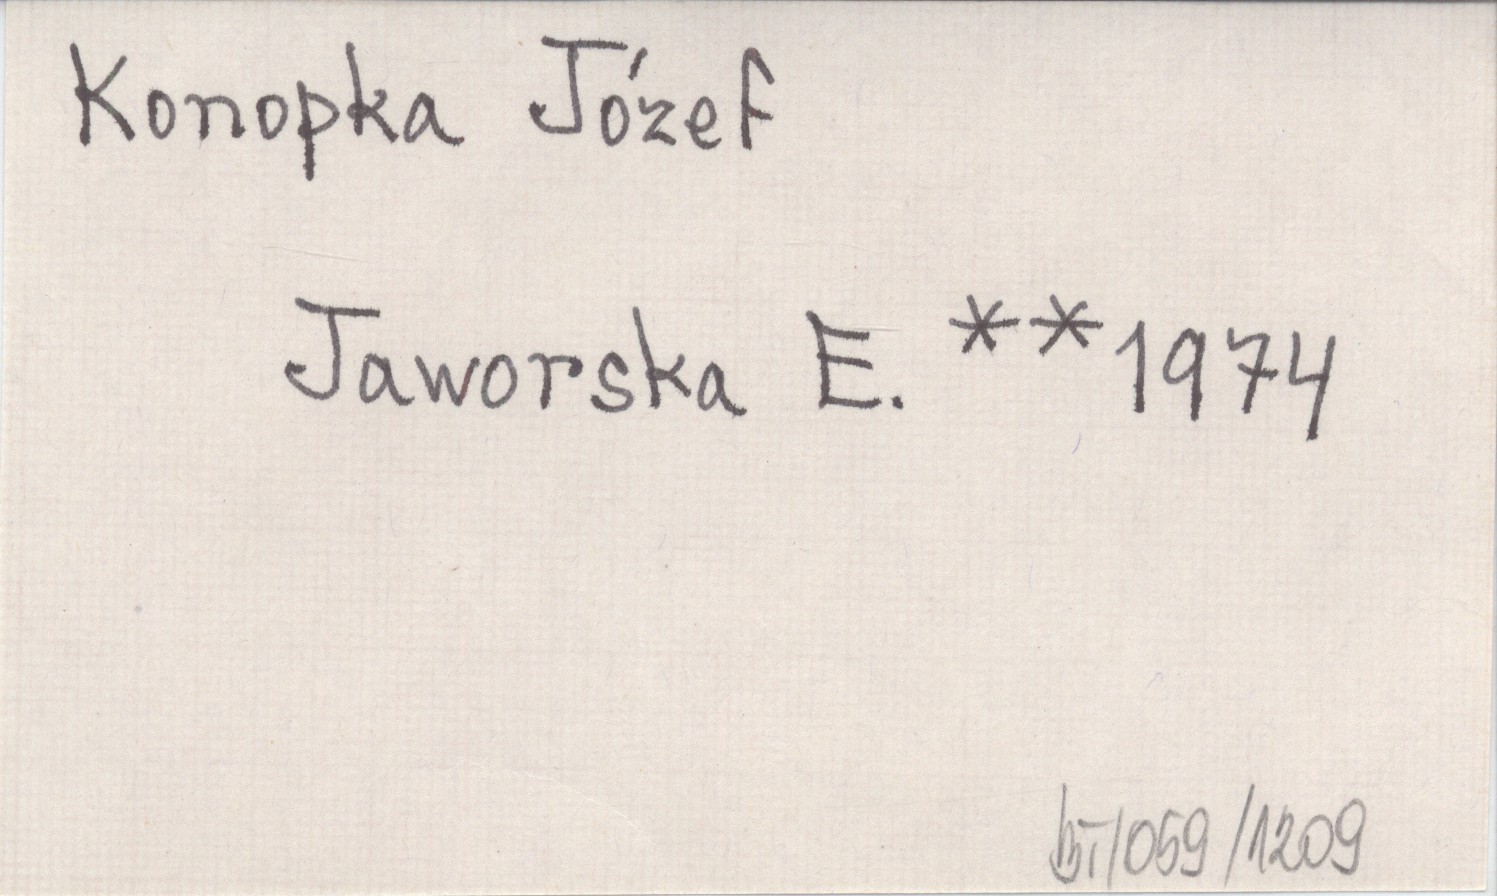 Konopka Józef
Jaworska E. **1974
/059/1209